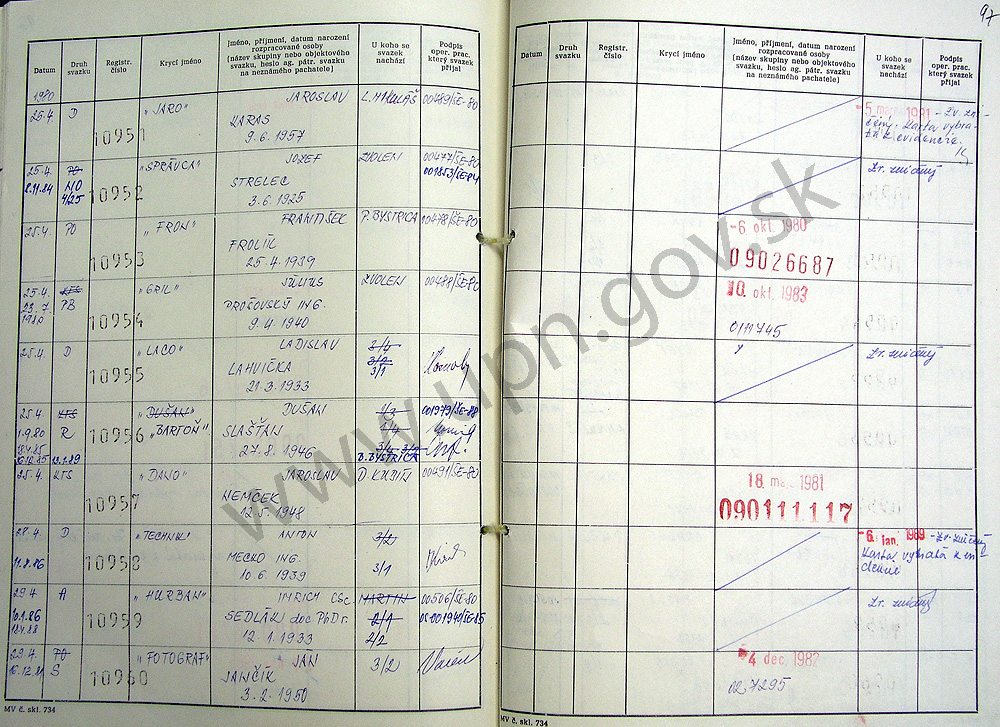 97
Datum
Druh svazku
Registr. číslo
Krycí jméno
Jméno, příjmení, datum narození
rozpracované osoby
[název skupiny nebo objektového
svazku, heslo ag. pátr. svazku
na neznámého pachatele]
U koho se
svazek
nachází
Podpis
oper. prac.
který svazek
přijal
1980
25.4. D 10951 "JARO" JAROSLAV L. MIKULÁŠ 00489/ŠE-80
KARAS
9.6.1957
25.4. PO 10952 "SPRÁVCA" JOZEF ZVOLEN 00477/ŠE-80
8.11.84 STRELEC 001853/ŠE-84
4/25 3.6.1925
25.4. PO 10953 "FRON" FRANTIŠEK P. BYSTRICA 00478/ŠE-80
FROLÍK
25.4.1939
25.4. KTS 10954 "GRIL" JÚLIUS ZVOLEN 00488/ŠE-80
23.7. PB
1980
ING.
9.4.1940
25.4. D 10955 "LACO" LADISLAV 3/4
LAHVIČKA 3/2
21.3.1933 3/1
25.4. KTS 10956 "DUŠAN" DUŠAN 1/3 001979/ŠE-88
1.9.80 R "BARTOŇ" SLAŠŤAN 1/4
27.8.1946 3/4
B. BYSTRICA
25.4. KTS 10957 "DANO" JAROSLAV D. KUBÍN 00491/ŠE-80
NEMČEK
12.5.1948
28.4. D 10958 "TECHNIK" ANTON 3/2
11.8.86 MECKO ING. 3/1
10.6.1939
29.4. A 10959 "HURBAN" IMRICH CSc. MARTIN 00506/ŠE-80
10.1.86 SEDLÁK doc PhDr. 2/1
18.4.88 12.1.1933 2/2
29.4. PO 10960 "FOTOGRAF" JÁN 3/2
Š JANČÍK
3.2.1950
MV č. skl. 734
Datum
Druh
svazku
Registr.
číslo
Krycí jméno
Jméno, příjmení, datum narození
rozpracované osoby
[název skupiny nebo objektového
svazku, heslo ag. pátr. svazku
na neznámého pachatele]
U koho se
svazek
nachází
Podpis
oper. prac.
který svazek
přijal
1981 - Zv. zni-
čený. Karta vybra-
tá z evidencie.
Zv. zničený
-6. okt. 1980
09026687
10. okt. 1983
0111745
Zv. zničený
18. 1981
090111117
-6. jan. 1989 - Zv. zničený
Karta vybratá z evi-
dencie
Zv. zničený
4 dec. 1982
027295
MV č. skl. 734
www.upn.gov.sk